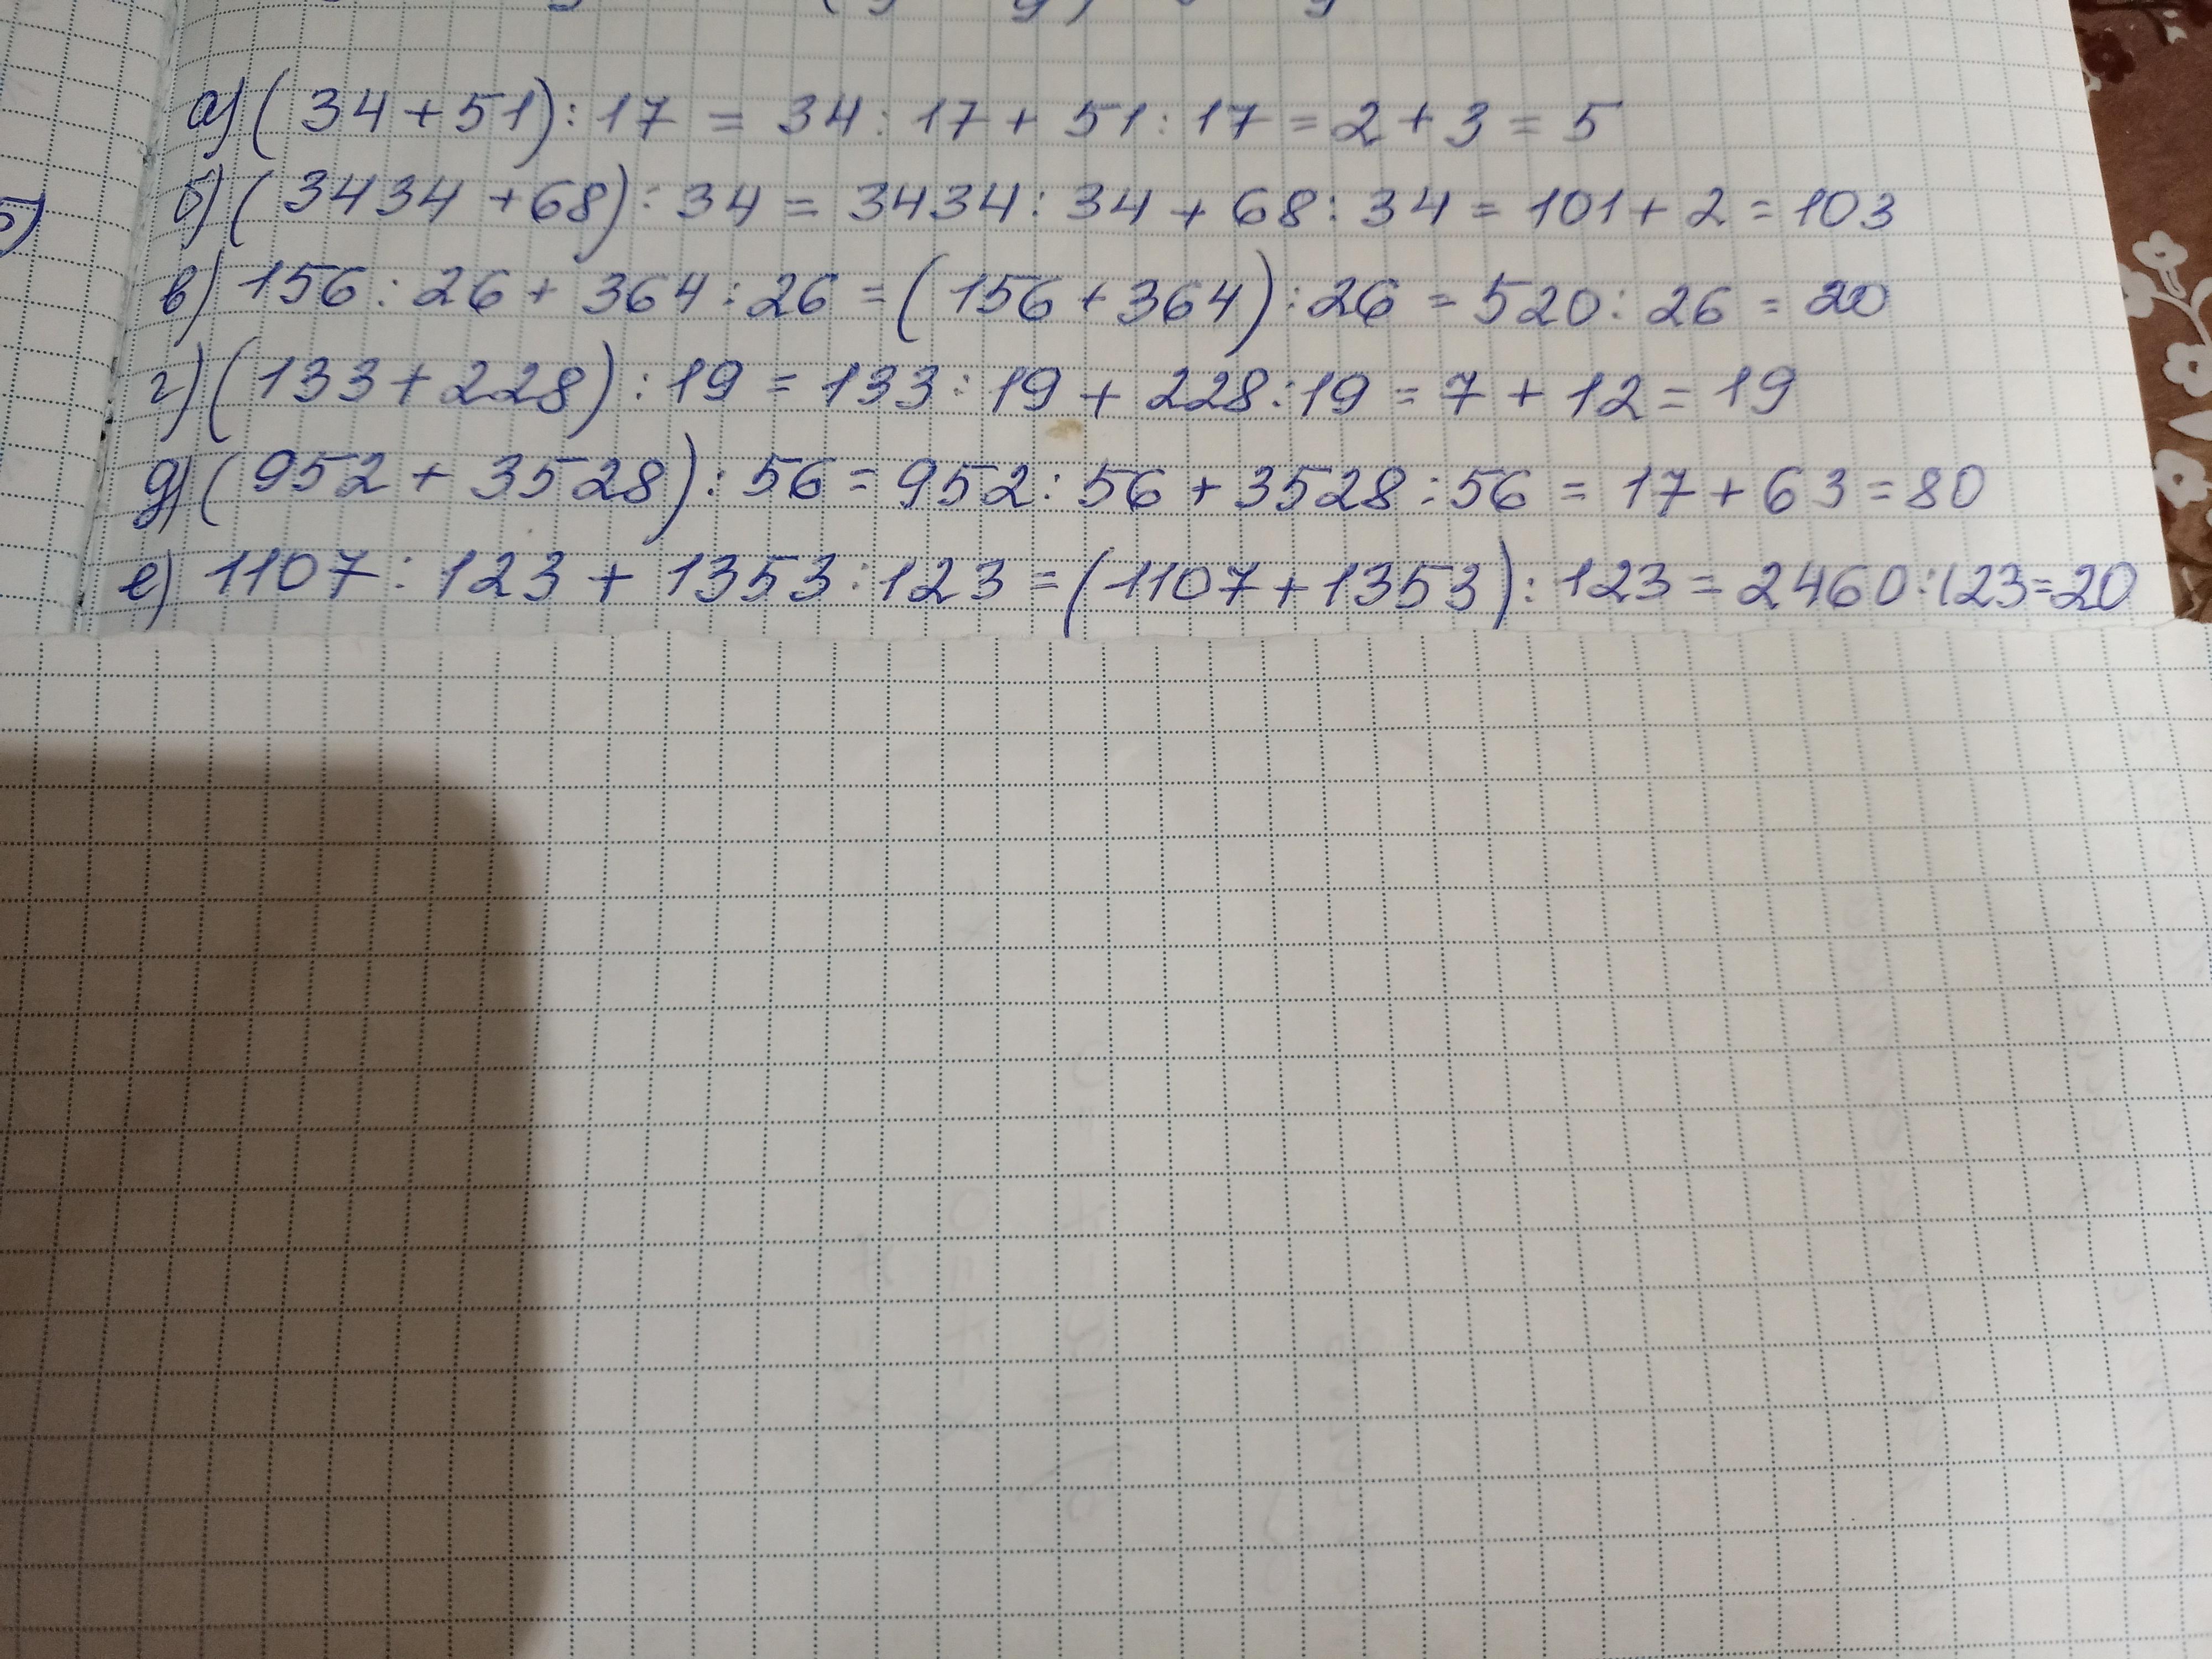 а) (34+51):17 = 34:17+51:17=2+3=5
б) (3434+68):34=3434:34+68:34=101+2=103
в) 156:26+364:26=(156+364):26=520:26=20
г) (133+228):19=133:19+228:19=7+12=19
д) (952+3528):56=952:56+3528:56=17+63=80
е) 1107:123+1353:123=(1107+1353):123=2460:123=20